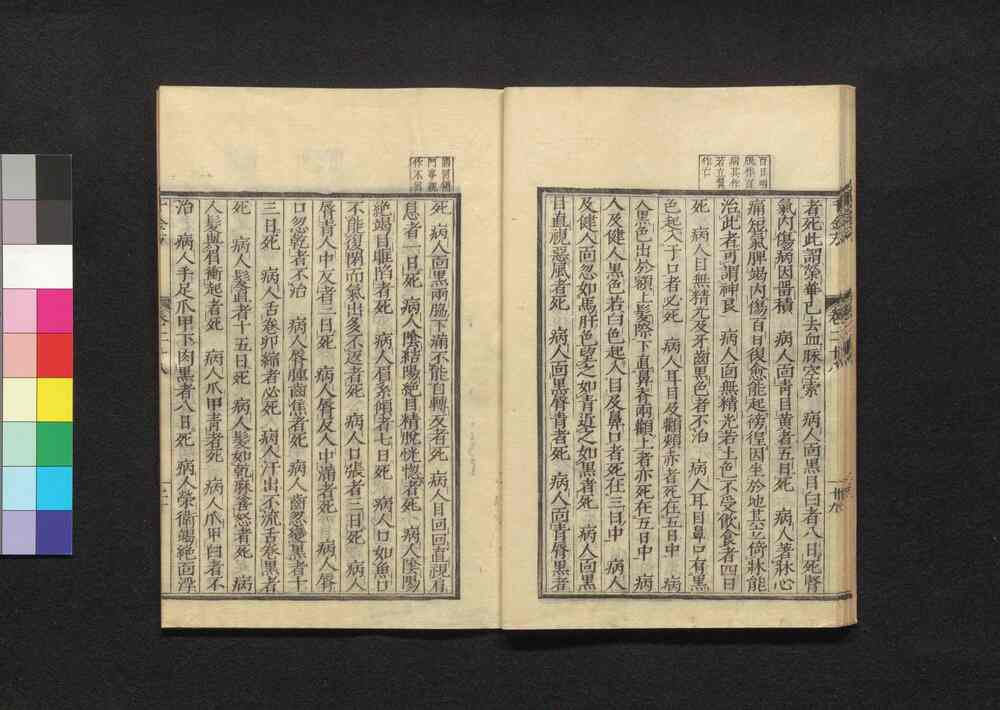 者死此謂榮華已去血脉空索 病人面黒目白者八日死腎
氣内傷病因畱積 病人面青目黄者五日死 病人著牀心
痛短氣脾竭内傷百日復愈能起傍徨因坐於地其立倚牀能
治此者可謂神良 病人面無精光若土色不受飲食者四日
死 病人目無精光及牙齒黒色者不治 病人耳目鼻口有黒
色起入于口者必死 病人耳目及顴頰赤者死在五日中 病
人黒色出於額上髮際下直鼻脊兩顴上者亦死在五日中 病
人及健人黒色若白色起入目及鼻口者死在三日中 病人
及健人面忽如馬肝色望之如青近之如黒者死 病人面黒
目直視惡風者死 病人面黒脣青者死 病人面青脣黒者
死 病人面黒兩脇下滿不能自轉反者死 病人目回回直視肩
息者一日死 病人陰結陽絶目精脫恍惚者死 病人陰陽
絶竭目眶陷者死 病人眉系傾者七日死 病人口如魚口
不能復閉而氣出多不返者死 病人口張者三日死 病人
脣青人中反者三日死 病人脣反人中滿者死 病人脣
口忽乾者不治 病人脣腫齒焦者死 病人齒忽變黒者十
三日死 病人舌卷卵縮者必死 病人汗出不流舌卷黒者
死 病人髮直者十五日死 病人髮如乾麻善怒者死 病
人髮與眉衝起者死 病人爪甲青者死 病人爪甲白者不
治 病人手足爪甲下肉黒者八日死 病人榮衞竭絶面浮